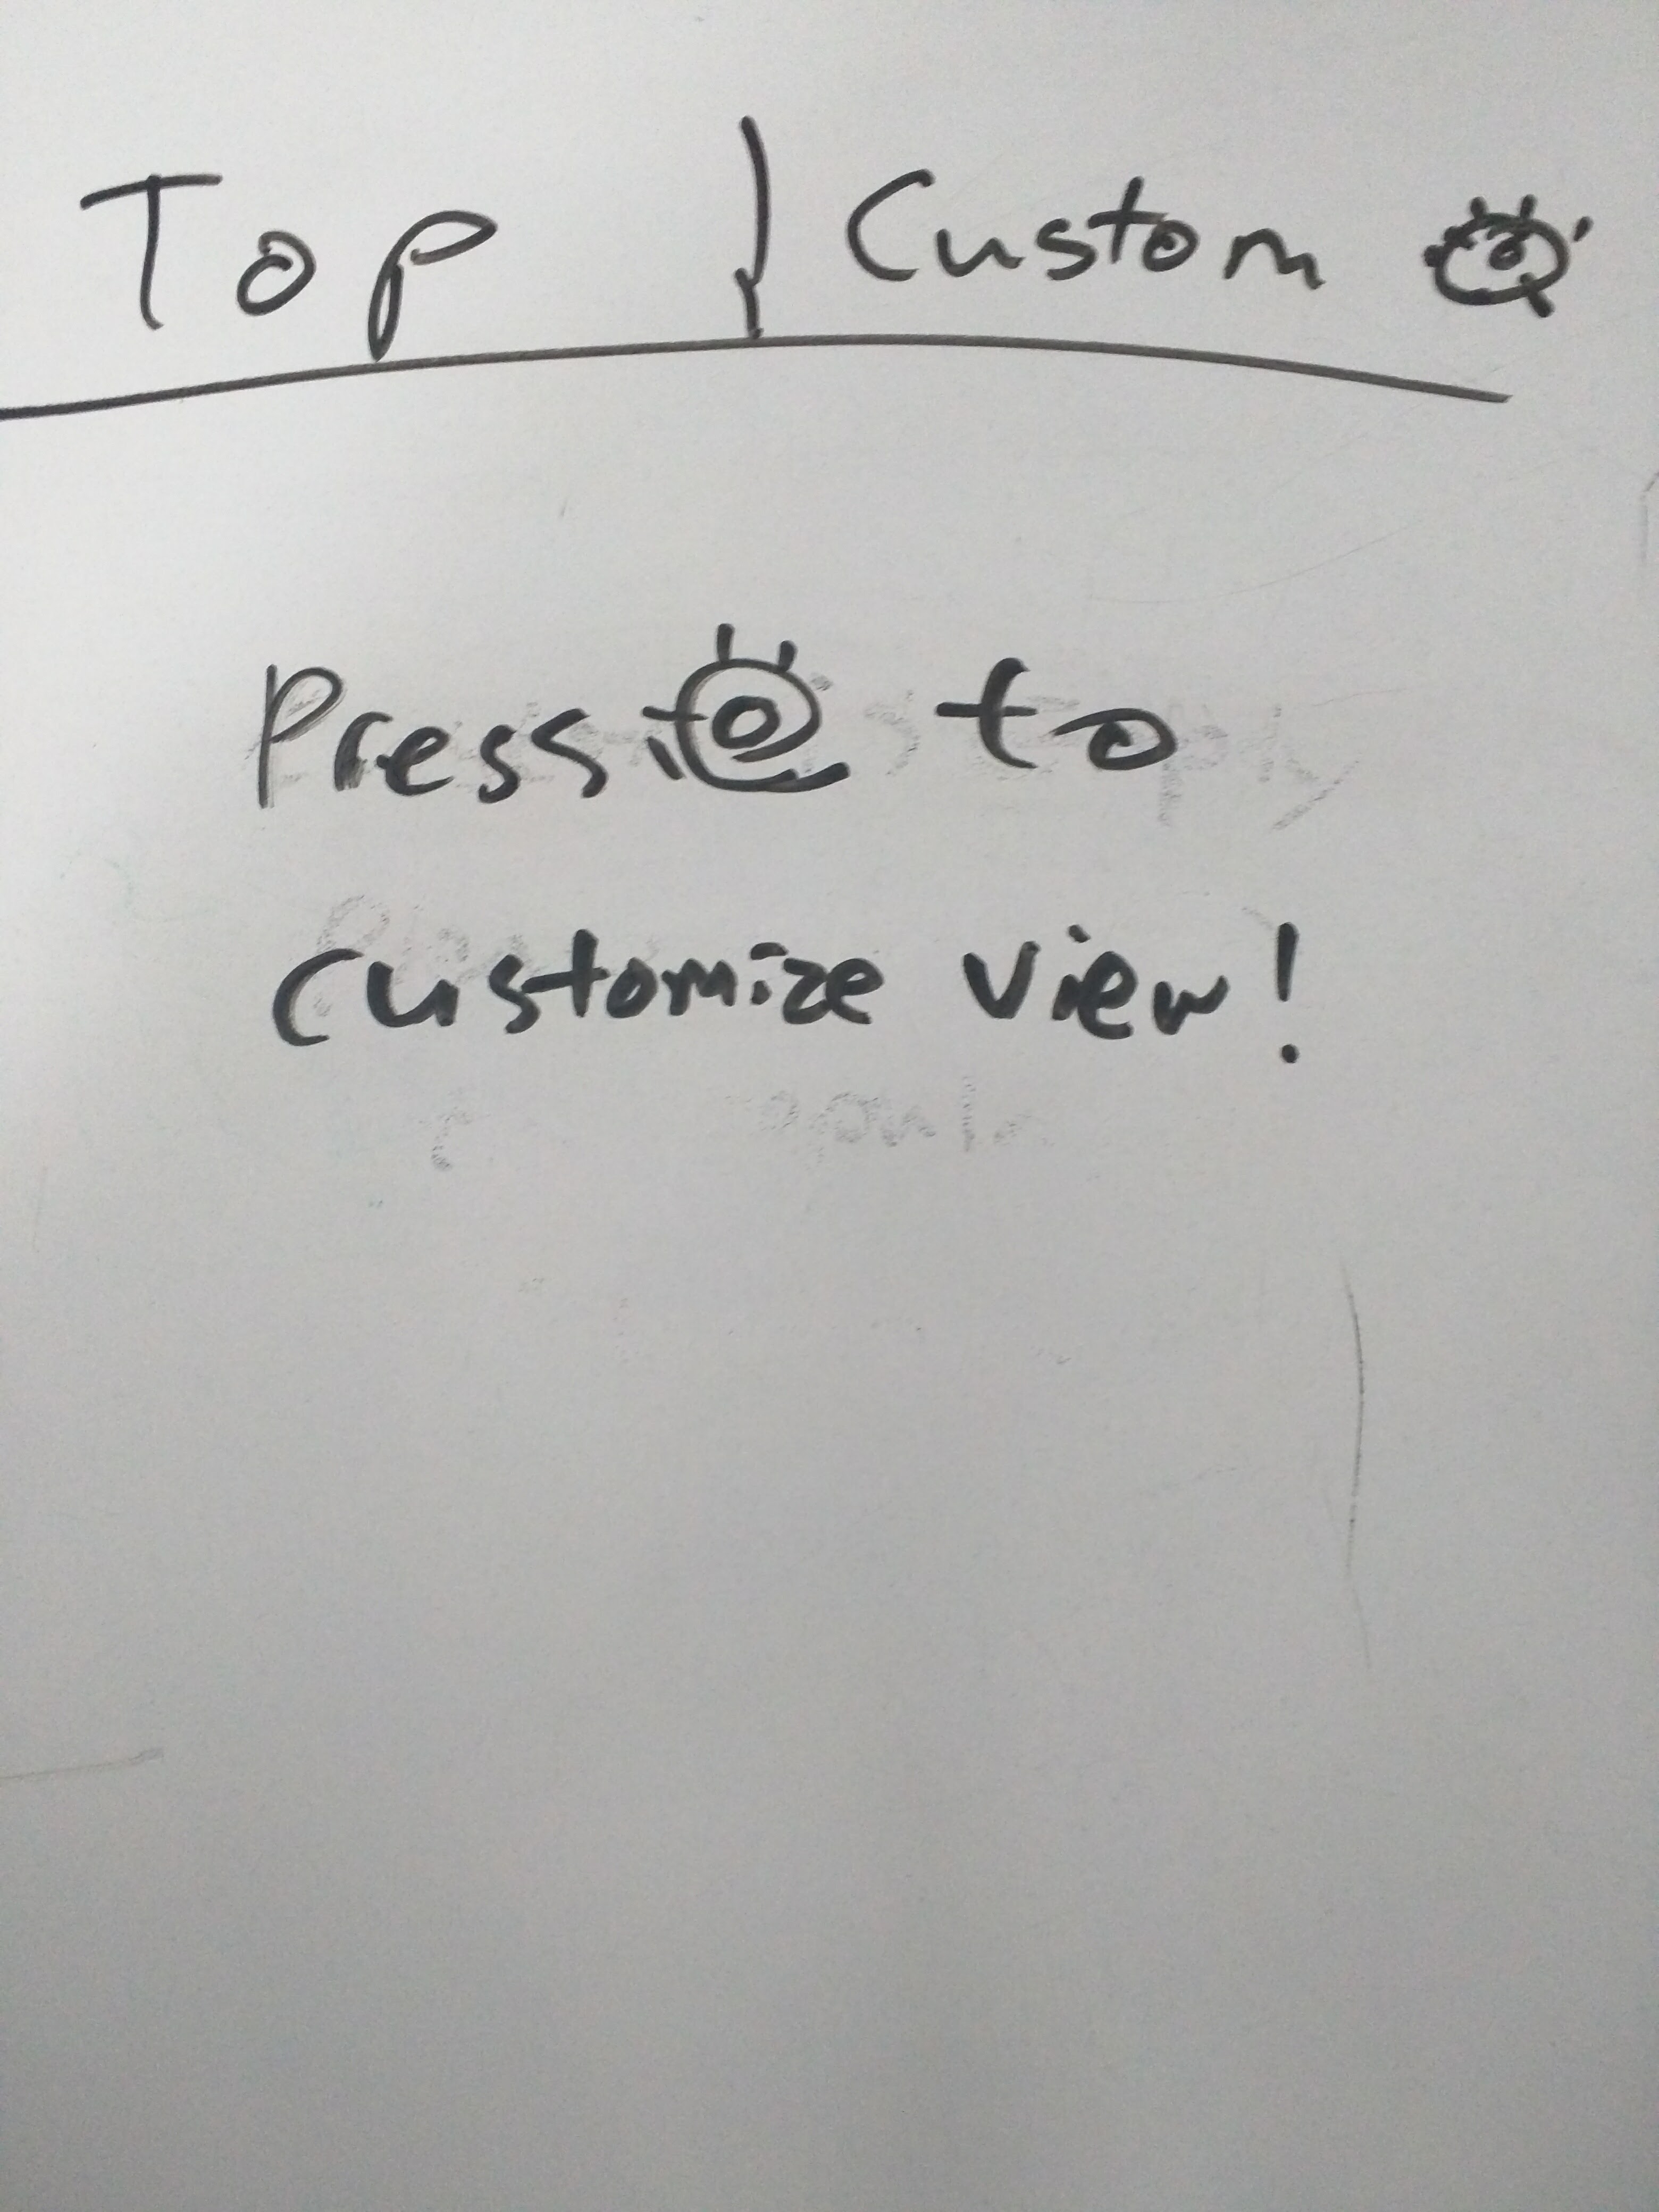 Top | Custom
Press to
customize view!